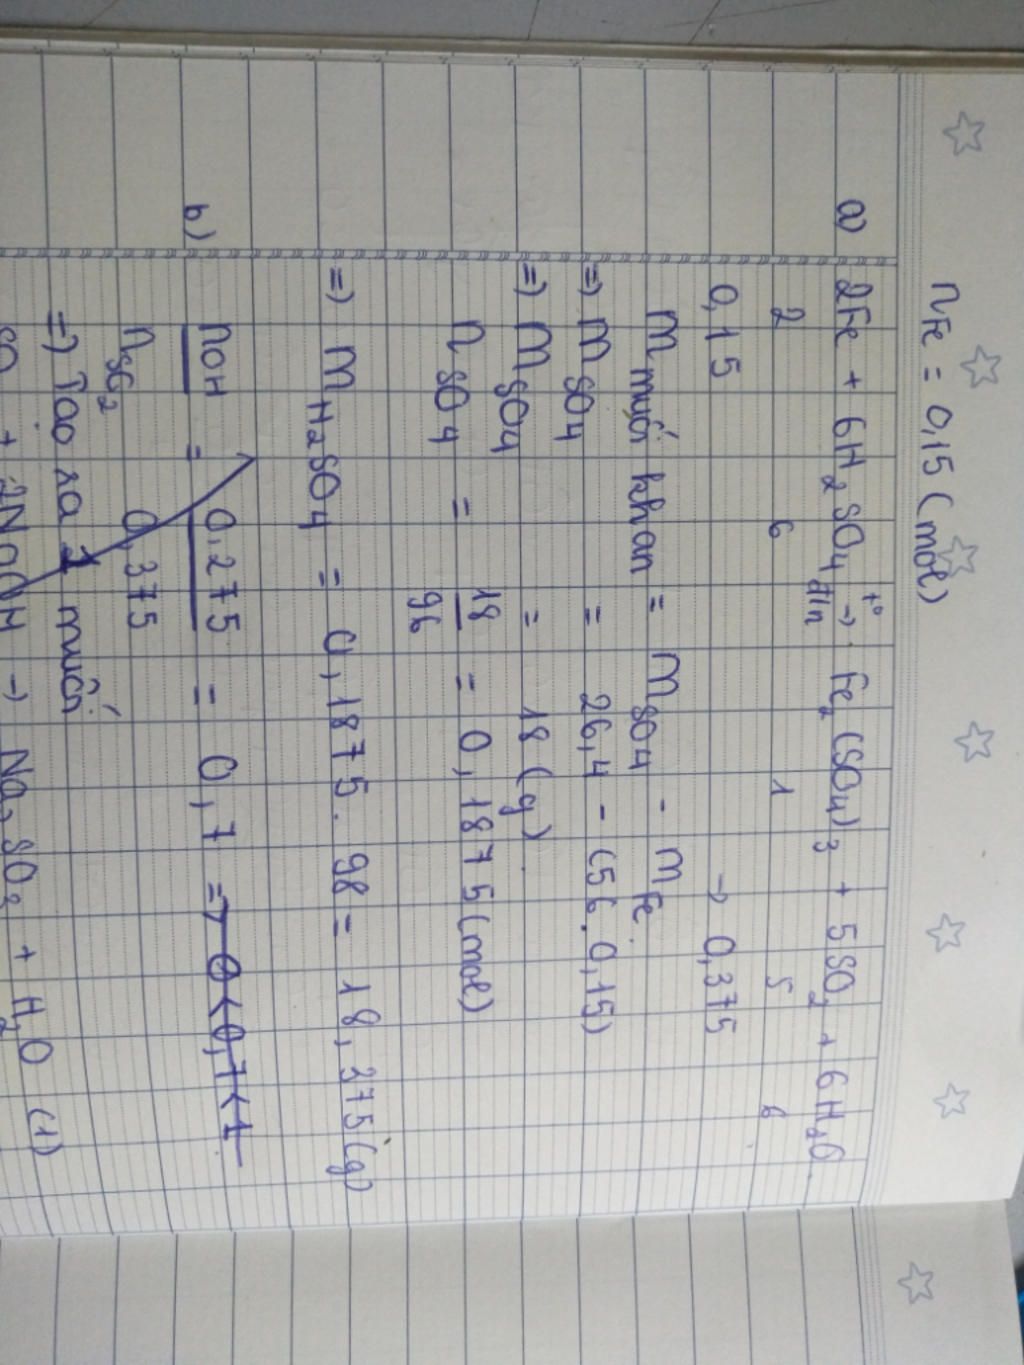 nFe = 0,15 (mol)
a) 2Fe + 6H2SO4 đ/n t° → Fe2(SO4)3 + 5SO2 + 6H2O
2 6 1 5 6
0,15 → 0,375
m muối khan = mSO4 - mFe
=> mSO4 = 26,4 - (56.0,15)
=> mSO4 = 18 (g)
nSO4 = 18/96 = 0,1875 (mol)
=> mH2SO4 = 0,1875. 98 = 18,375 (g)
b) nOH/nSO2 = 0,275/0,375 = 0,7 => 0<0,7<1
=> Tạo ra 1 muối
SO2 + 2NaOH → Na2SO3 + H2O (1)